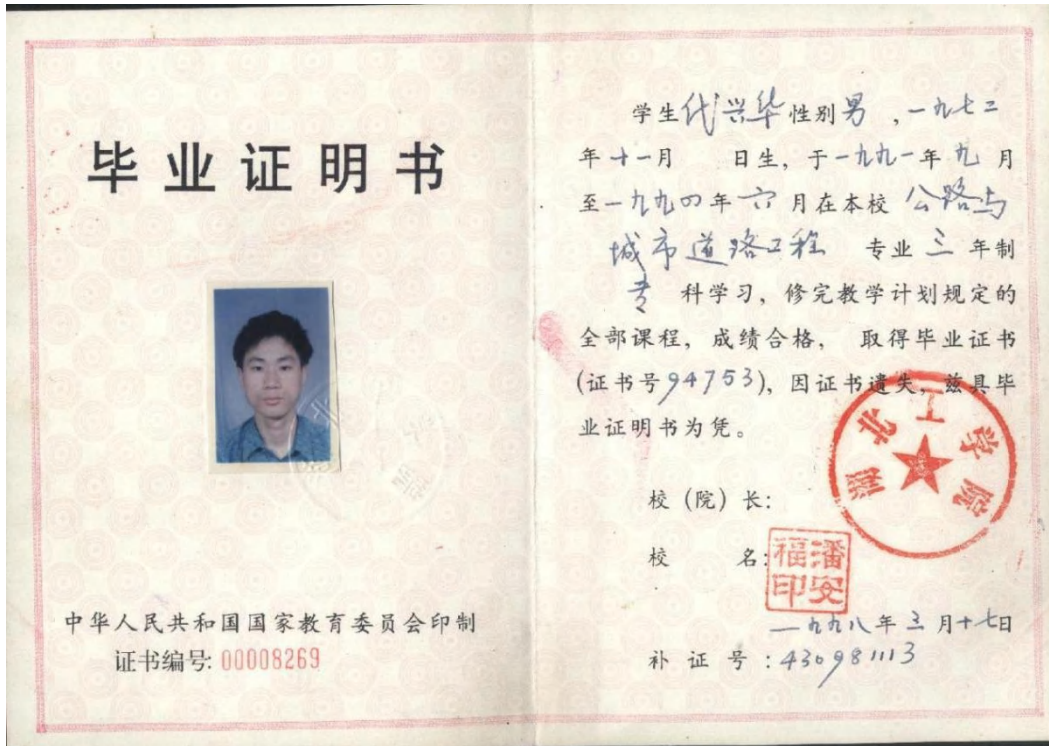 毕业证明书
中华人民共和国国家教育委员会印制
证书编号: 00008269
学生代兴华性别男,一九七二
年十一月 日生,于一九九一年九月
至一九九四年六月在本校公路与
城市道路工程 专业三年制
专科学习,修完教学计划规定的
全部课程,成绩合格, 取得毕业证书
(证书号94753),因证书遗失,兹具毕
业证明书为凭。
湖北工学院
校(院)长:
校 名:
潘安福印
一九九八年三月十七日
补 证 号:430981113